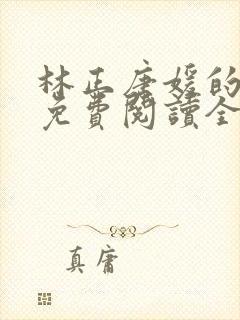 林正唐媛的
免費閱讀全
真庸